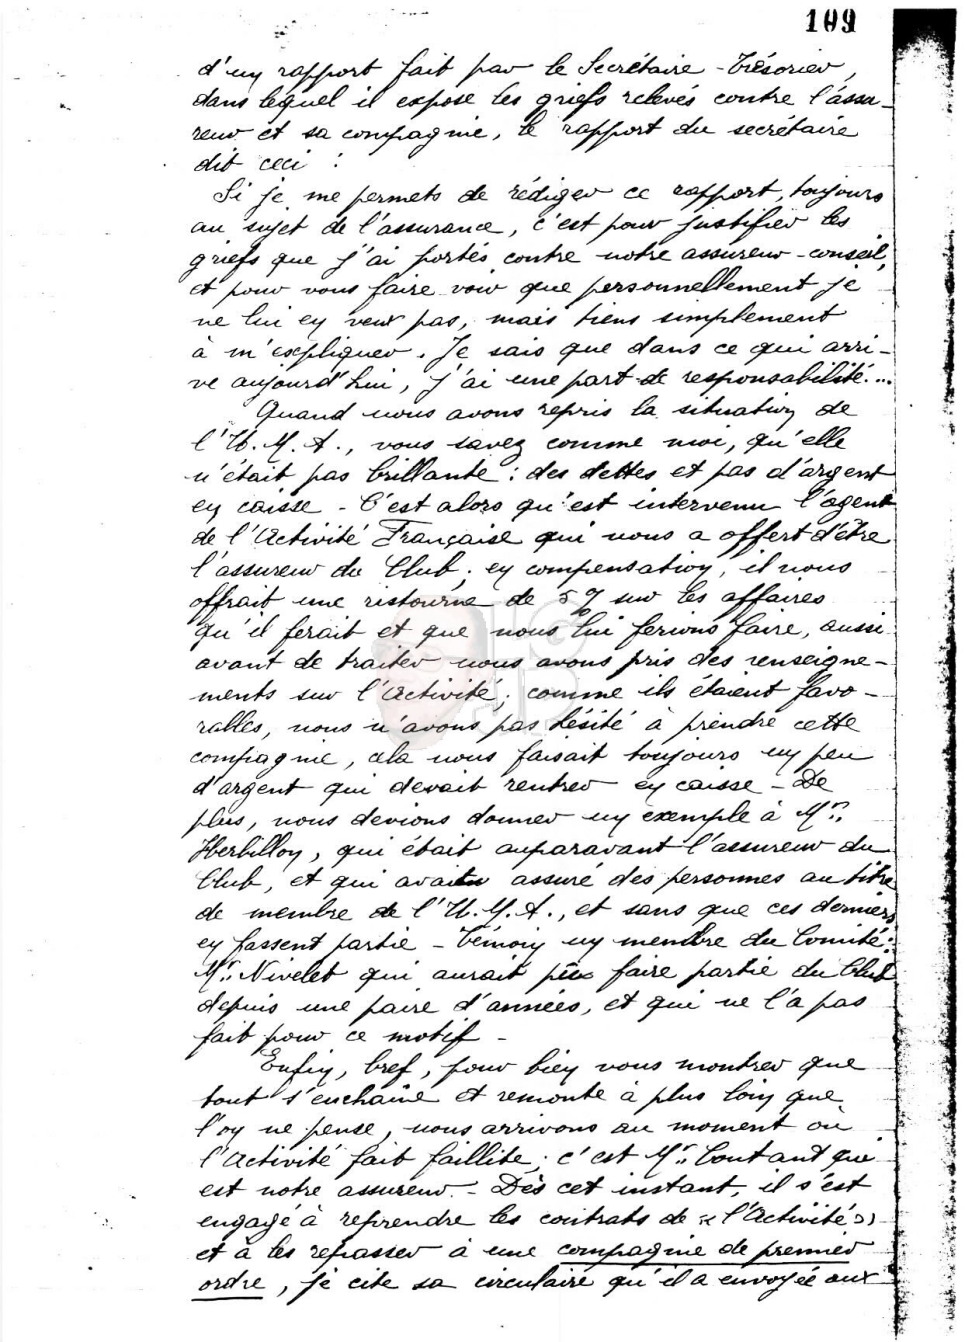 109
d'un rapport fait par le Secrétaire - Trésorier,
dans lequel il expose les griefs relevés contre l'assu-
reur et sa compagnie, le rapport du secrétaire
dit ceci :
Si je me permets de rédiger ce rapport, toujours
au sujet de l'assurance, c'est pour justifier les
griefs que j'ai portés contre notre assureur-conseil,
et pour vous faire voir que personnellement je
ne lui en veux pas, mais tiens simplement
à m'expliquer. Je sais que dans ce qui arri-
ve aujourd'hui, j'ai une part de responsabilité...
Quand nous avons repris la situation de
l'U.M.A., vous savez comme moi, qu'elle
n'était pas brillante : des dettes et pas d'argent
en caisse - C'est alors qu'est intervenu l'agent
de l'Activité Française qui nous a offert d'être
l'assureur du Club ; en compensation, il nous
offrait une ristourne de 5% sur les affaires
qu'il ferait et que nous lui ferions faire, aussi
avant de traiter nous avons pris des renseigne-
ments sur l'Activité ; comme ils étaient favo-
rables, nous n'avons pas hésité à prendre cette
compagnie, cela nous faisait toujours un peu
d'argent qui devait rentrer en caisse - De
plus, nous devions donner un exemple à Mr.
Herbillon, qui était auparavant l'assureur du
Club, et qui avait assuré des personnes au titre
de membre de l'U.M.A., et sans que ces derniers
en fassent partie - Témoin un membre du Comité :
Mr. Nivelet qui aurait pu faire partie du Club
depuis une paire d'années, et qui ne l'a pas
fait pour ce motif -
Enfin, bref, pour bien vous montrer que
tout s'enchaîne et remonte à plus loin que
l'on ne pense, nous arrivons au moment où
l'Activité fait faillite ; c'est Mr. Coutant qui
est notre assureur - Dès cet instant, il s'est
engagé à reprendre les contrats de « l'Activité »
et à les repasser à une compagnie de premier
ordre, je cite sa circulaire qu'il a envoyée aux